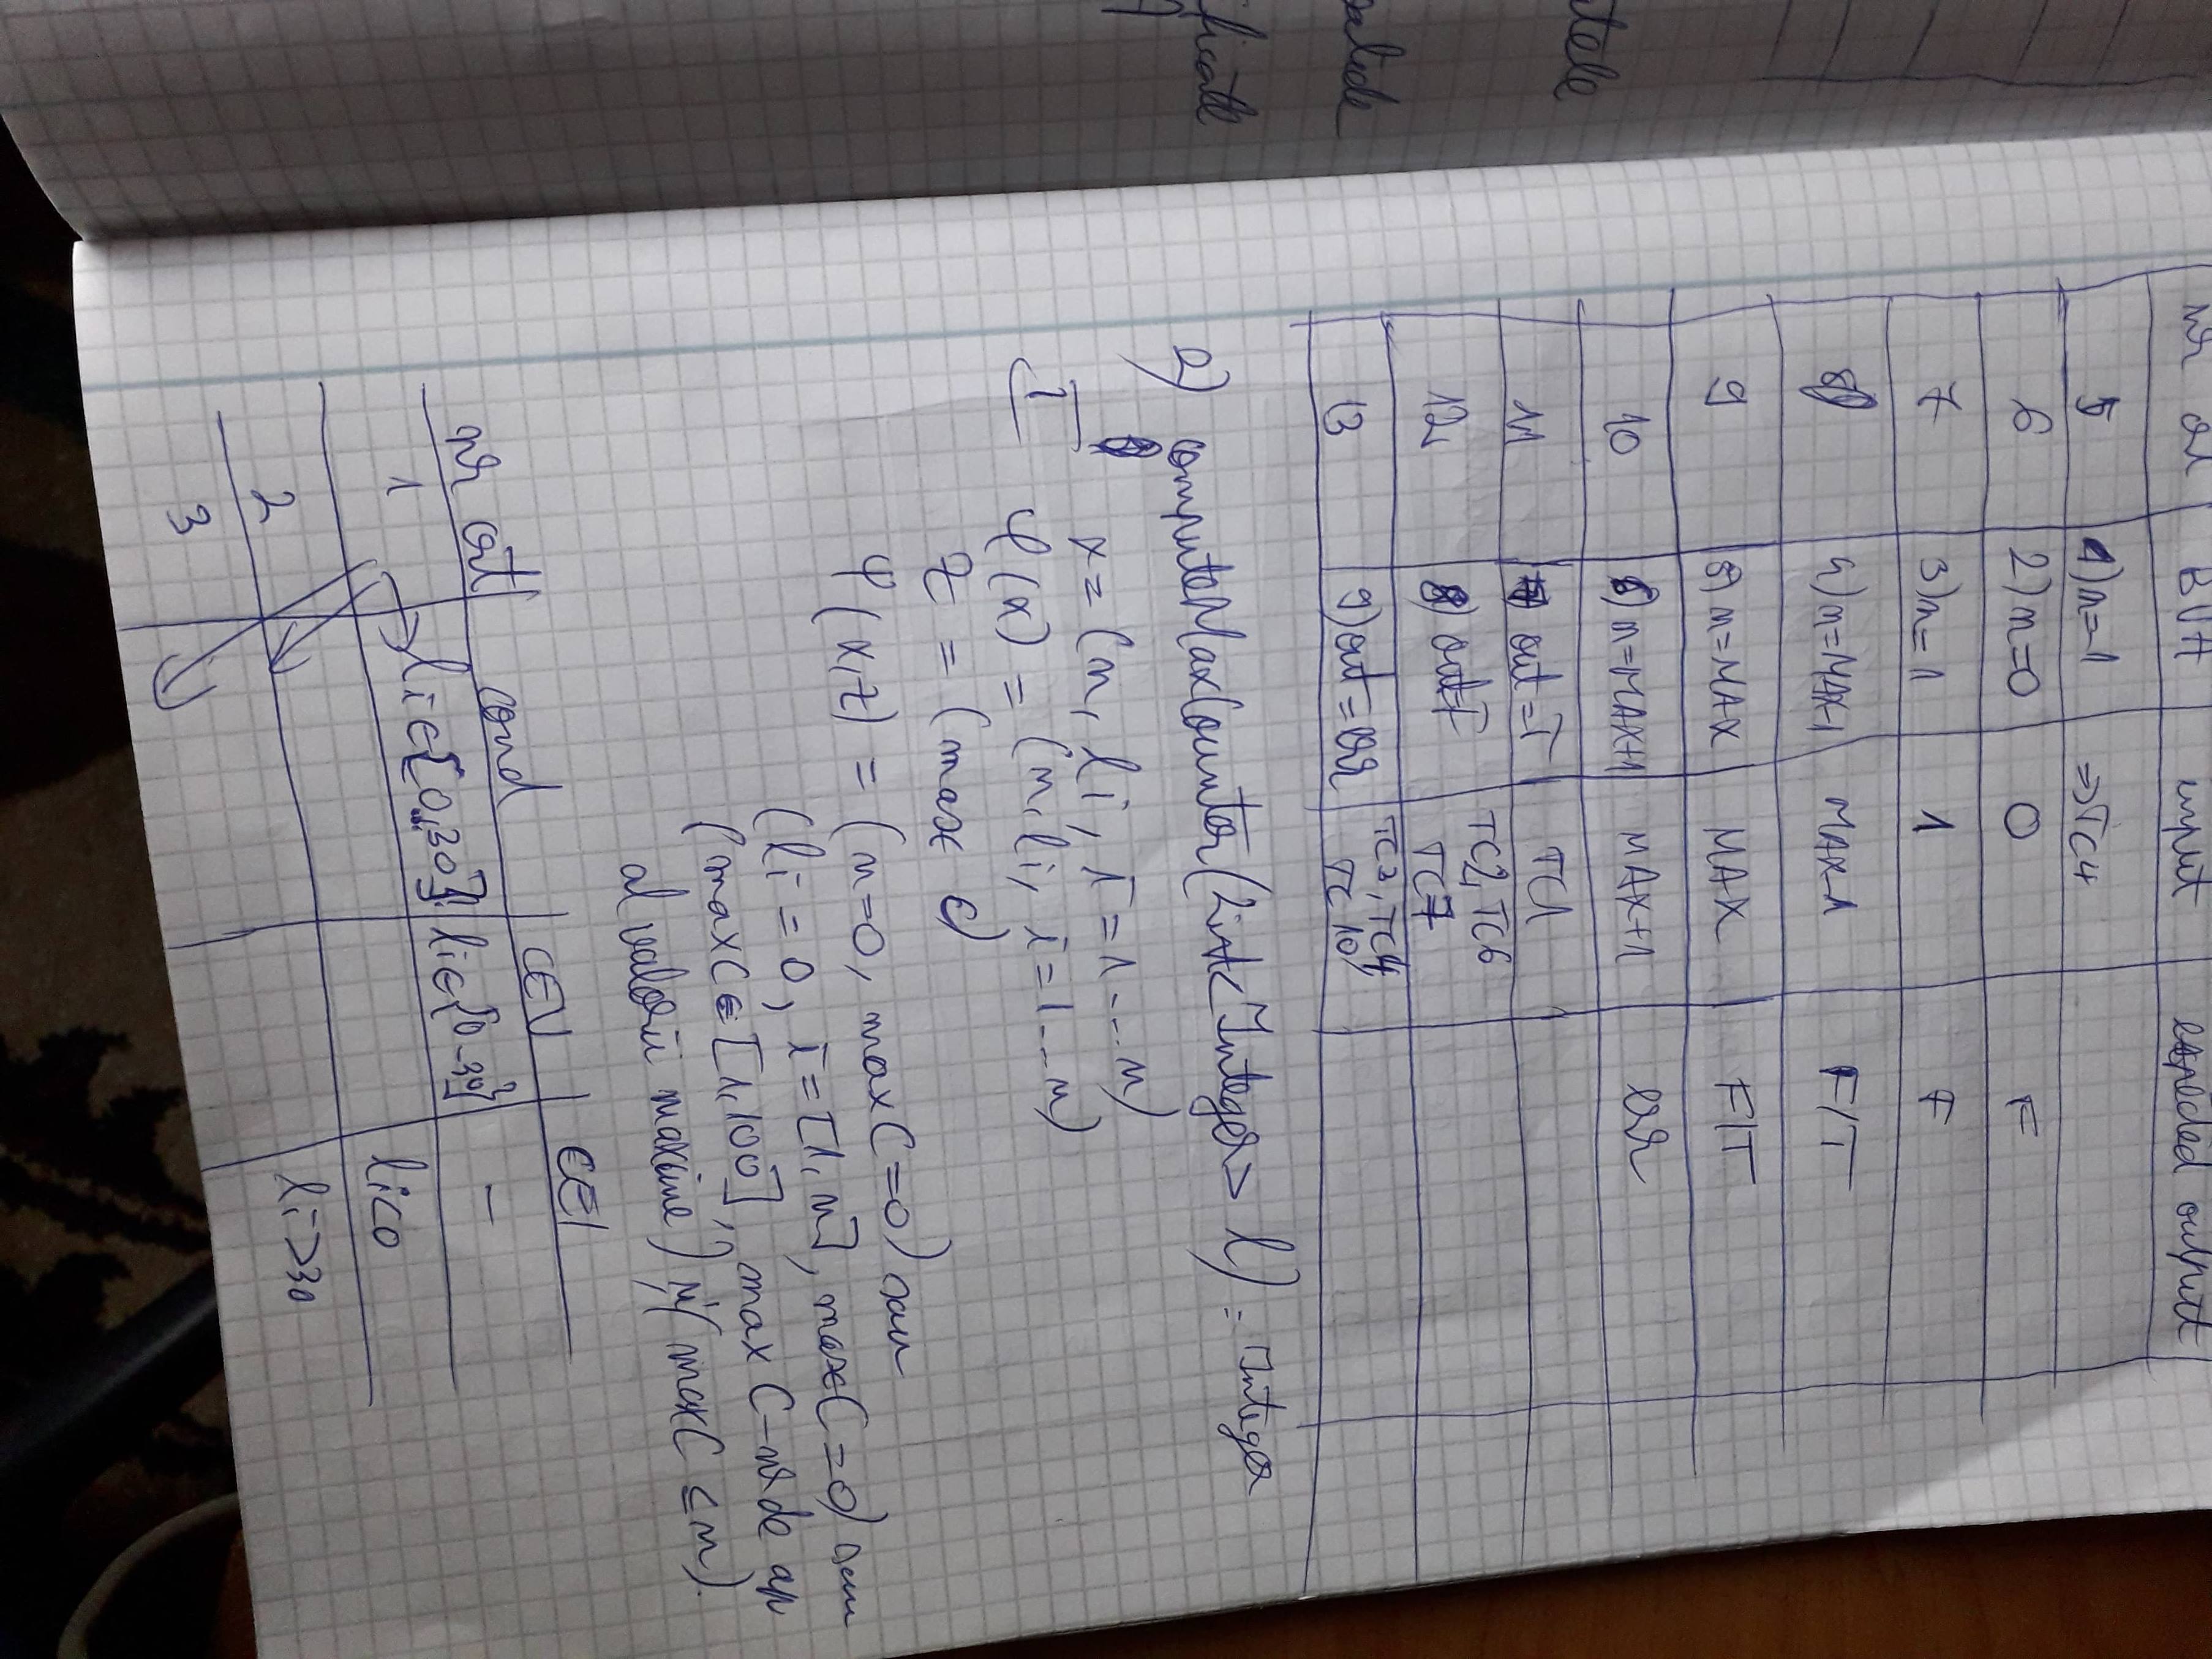 nr crt BVA input expected output
5 1) n=-1 => TC4
6 2) n=0 0 F
7 3) n=1 1 F
8 4) n=MAX-1 MAX-1 F/T
9 5) n=MAX MAX F/T
10 6) n=MAX+1 MAX+1 err
11 7) out=T TC1
12 8) out=F TC2, TC6
TC7
13 9) out=err TC3, TC4
TC10
2) computeMaxCounter(List<Integer> l) : Integer
I x=(n, li, i=1...n)
φ(x) = (n, li, i=1...n)
z = (max c)
ψ(x,z) = (n=0, maxC=0) sau
(li=0, i=[1,n], maxC=0) sau
(maxC∈[1,100], maxC-nr de ap
al valorii maxime) și (maxC ≤ n).
nr crt cond CEV CEI
1 li∈[0,30] li∈[0..30] -
2 li<0
3 li>30
ntele
valide
ificate